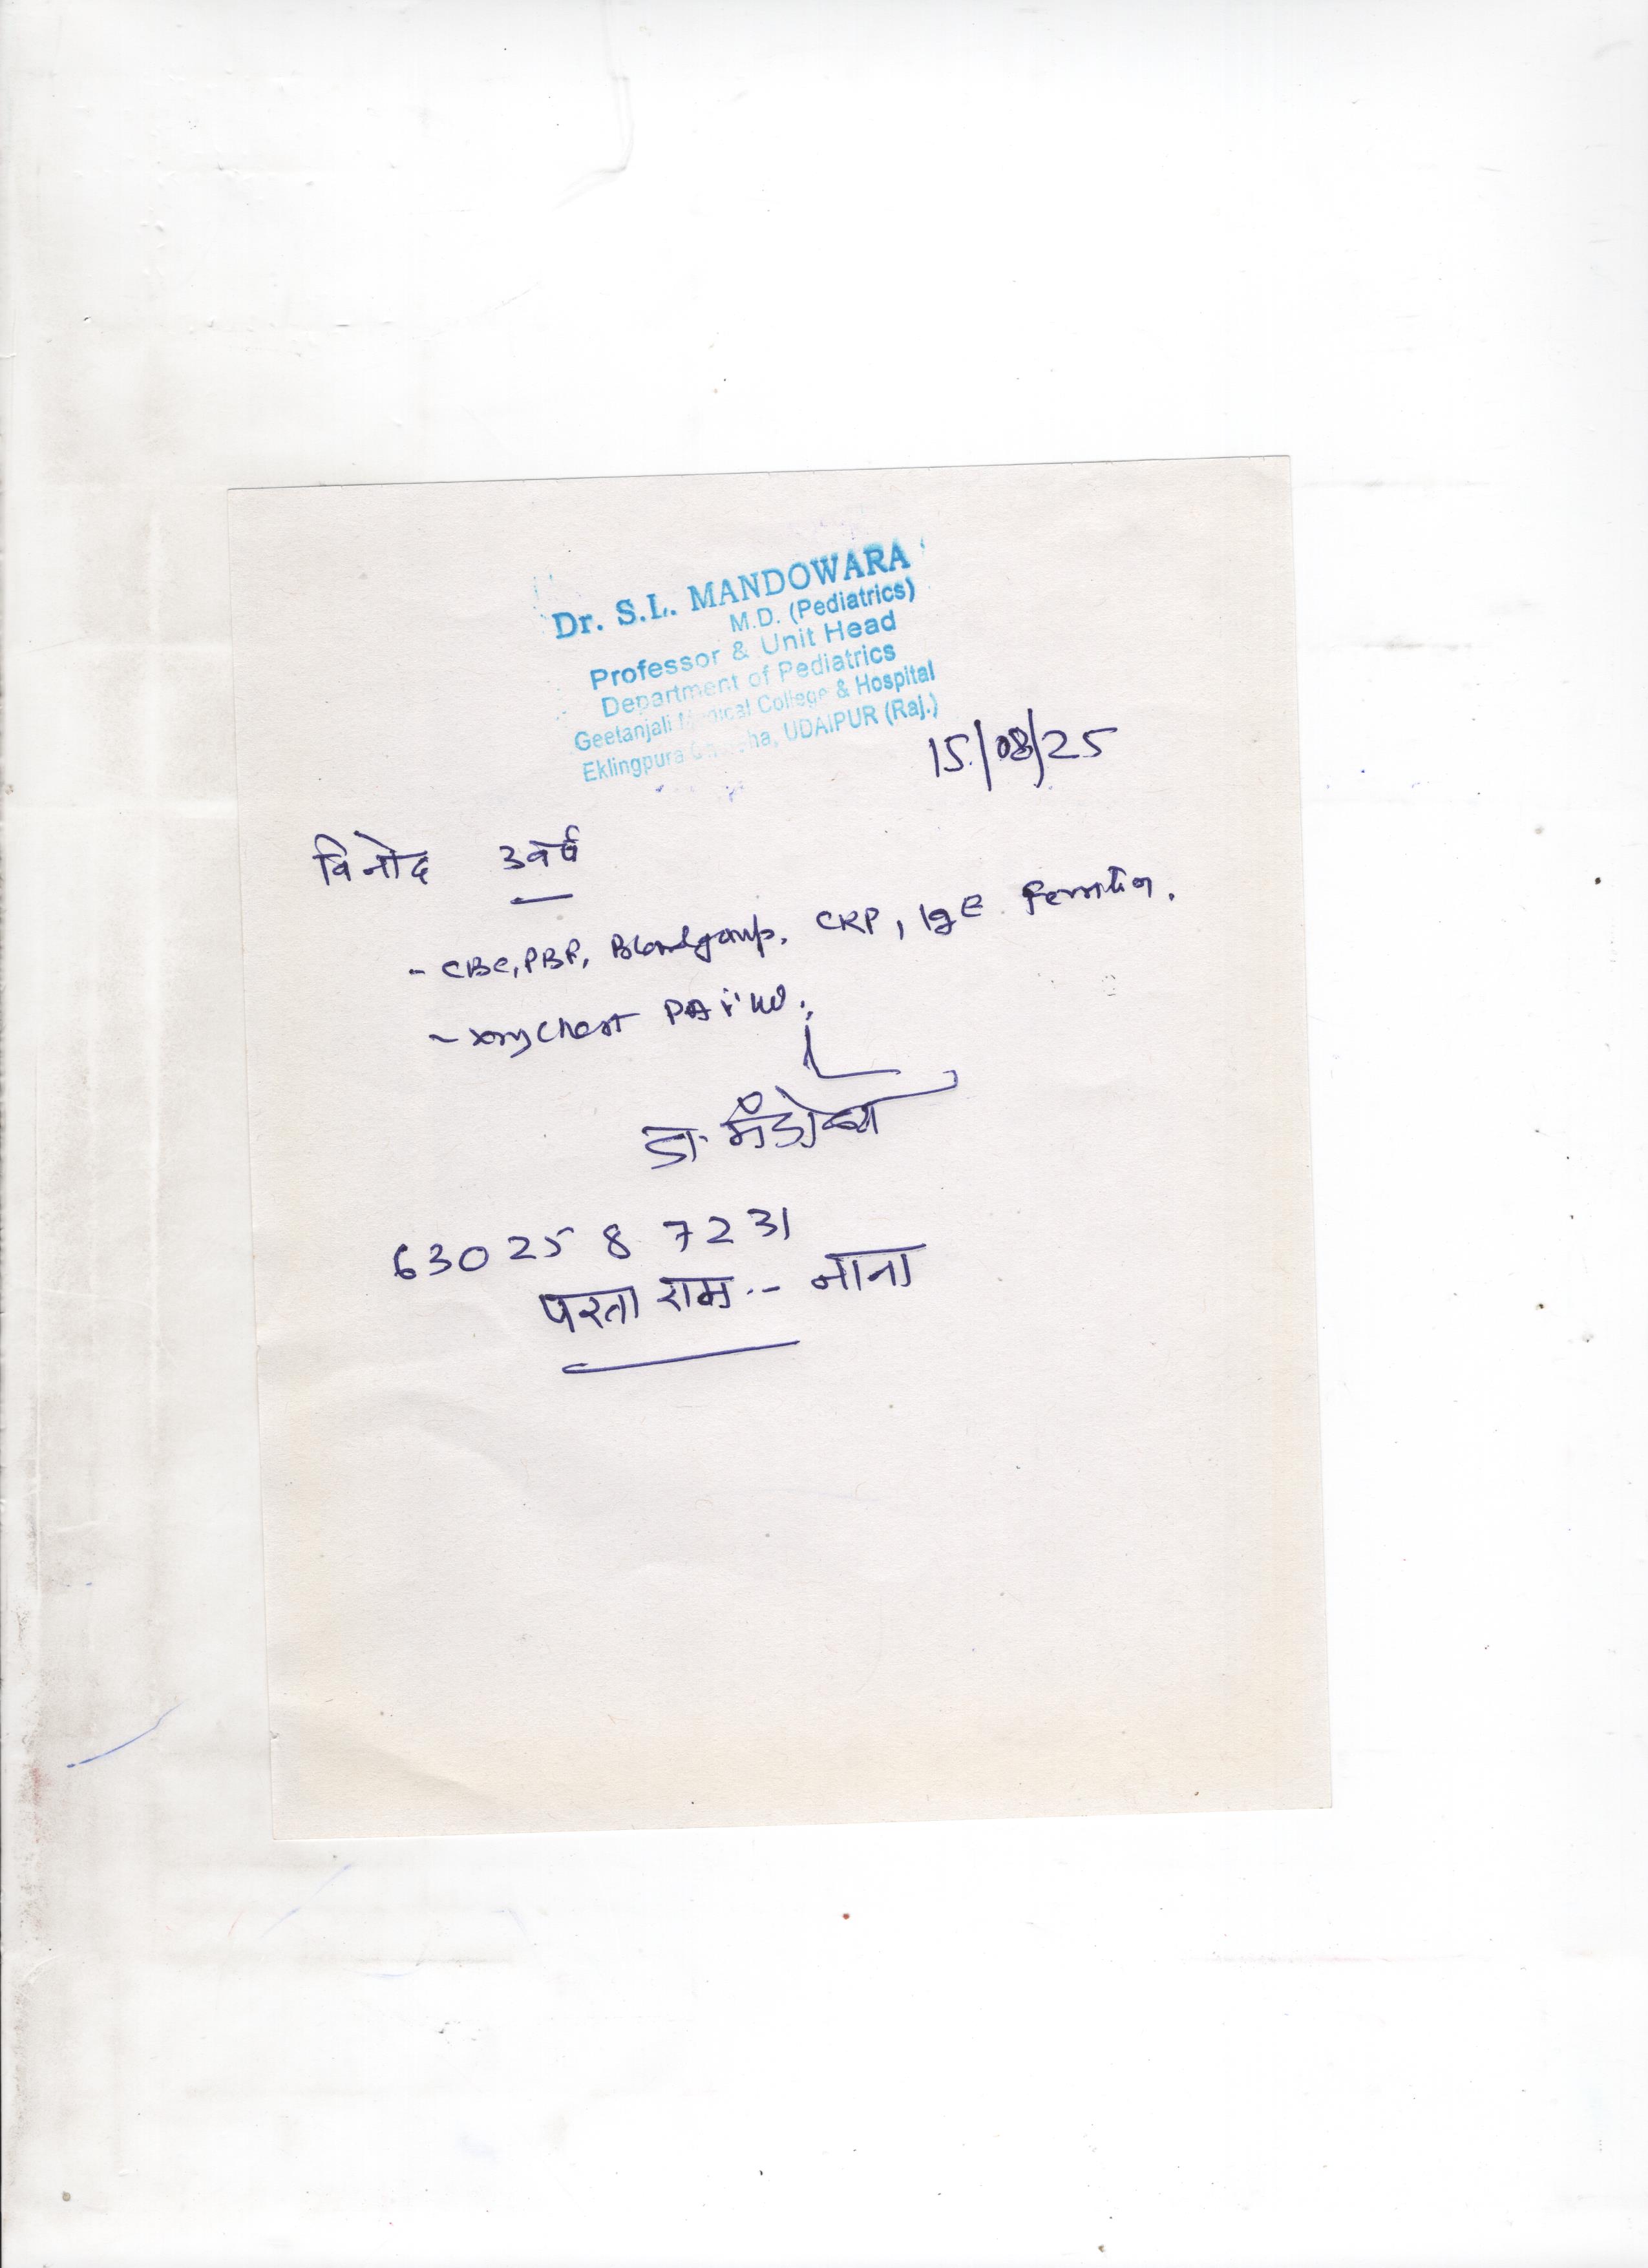 Dr. S.L. MANDOWARA
M.D. (Pediatrics)
Professor & Unit Head
Department of Pediatrics
Geetanjali Medical College & Hospital
Eklingpura UDAIPUR (Raj.)
15/08/25
विनोद 3वर्ष
- CBC, PBF, Bloodgroup, CRP, IgE Ferritin.
- xray Chest PA view.
डा. मंडोवरा
630 25 8 7231
परता राम -- नाना